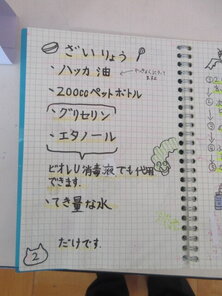 ざいりょう
・ハッカ油
・200ccペットボトル
・グリセリン
・エタノール
ビオレU消毒液でも代用
できます。
・てき量な水
だけです。
2